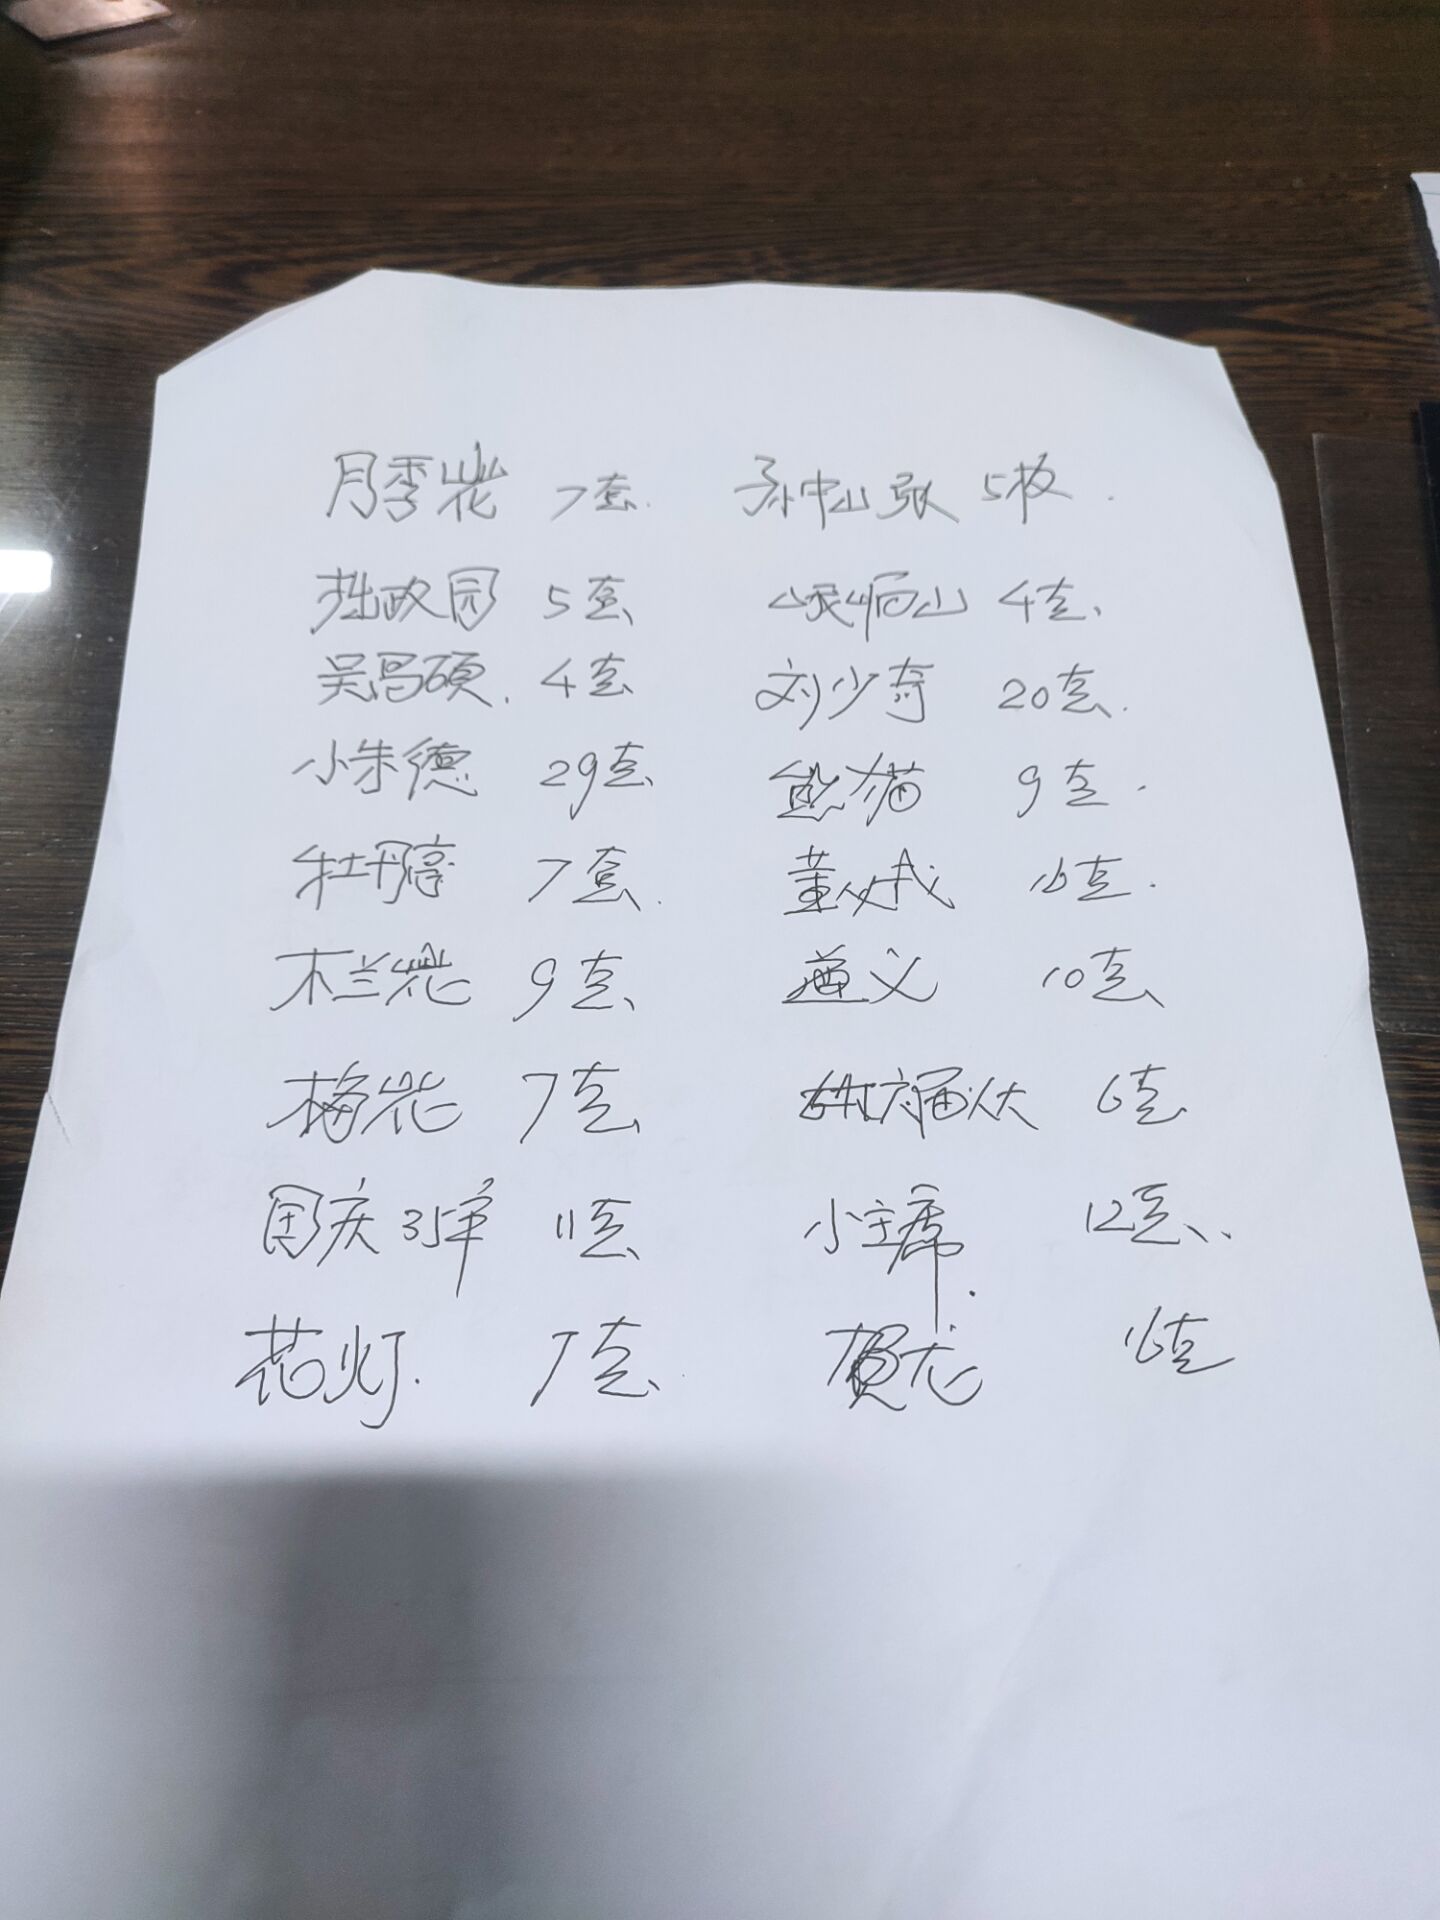 月季花 7套. 孙中山张 5板.
拙政园 5套 崆峒山 4套.
吴昌硕. 4套 刘少奇 20套.
小朱德 29套 熊猫 9套.
牡丹亭 7套. 董必武 16套.
木兰花 9套 遵义 10套
梅花 7套 六届人大 6套
国庆35年 11套 小主席. 12套.
花灯. 7套 贺龙 16套